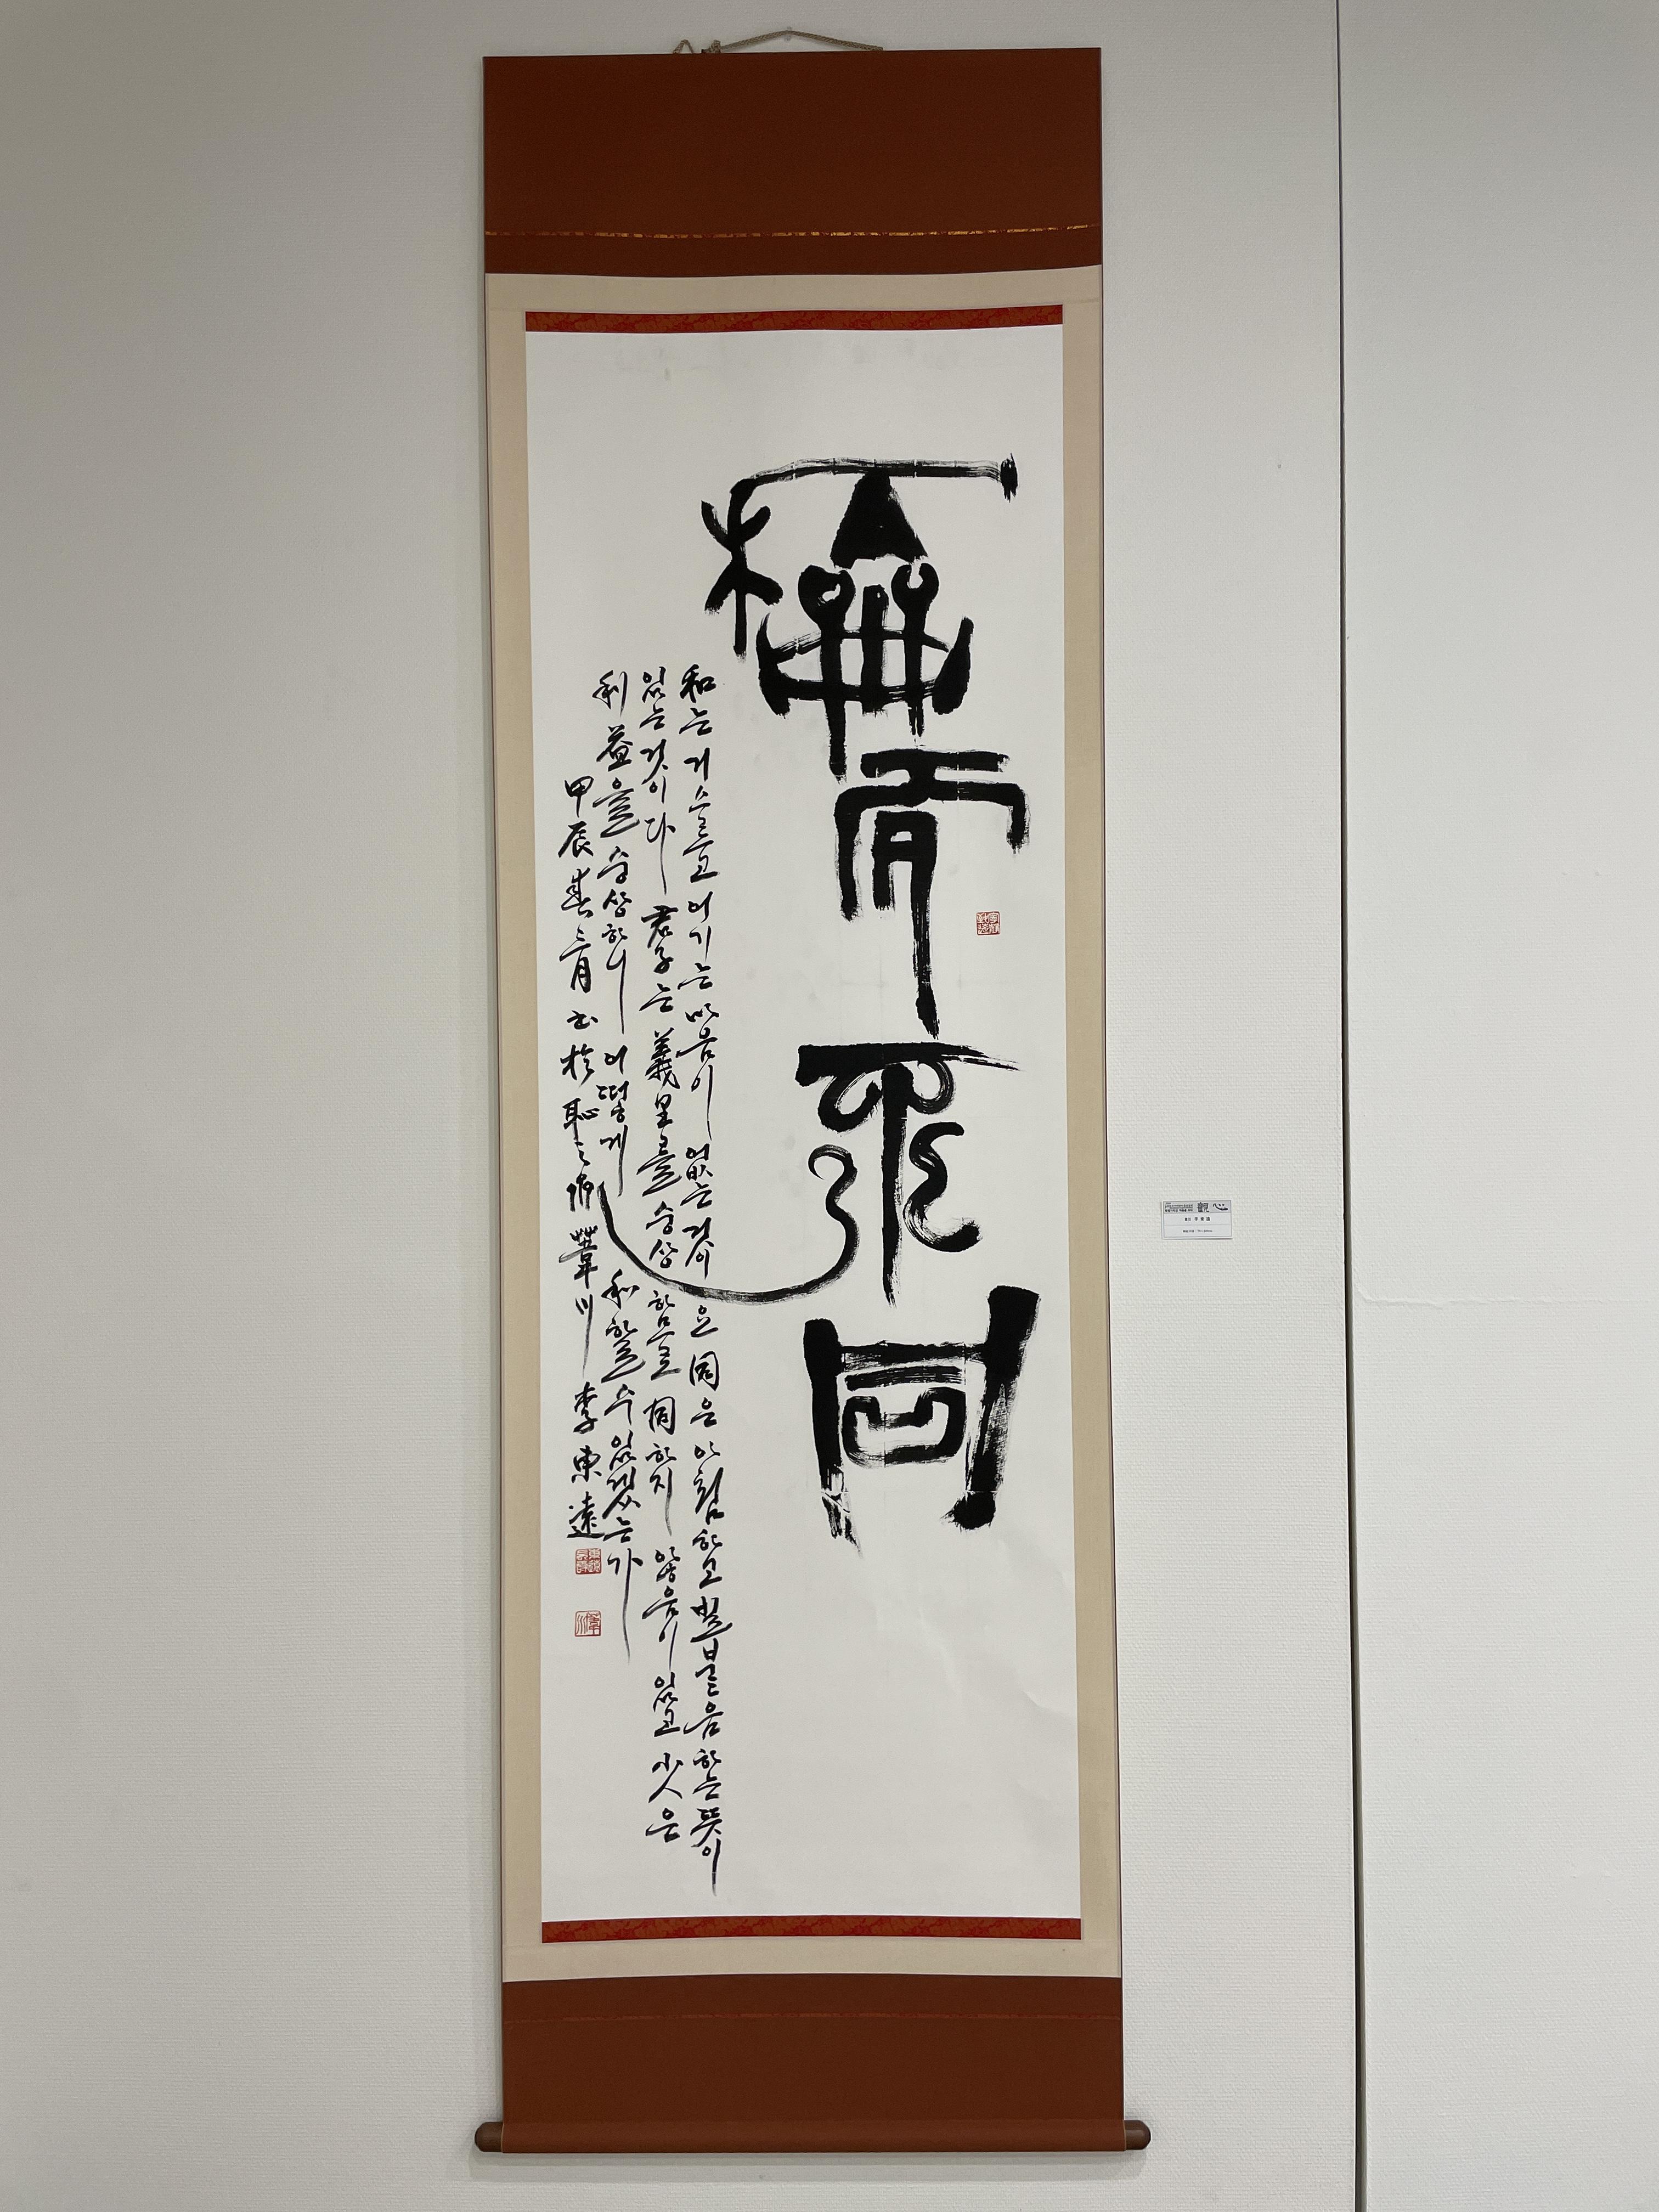 龢而不同
和는 거스르고 어기는 마음이 없는 것이요 同은 아첨하고 하는 뜻이
있는 것이다 君子는 義理를 숭상함으로 同하지 않음이 있고 小人은
利益을 숭상하니 어떻게 和할 수 있겠는가
甲辰春三月 書於恥之 葦川 李東遠
觀心